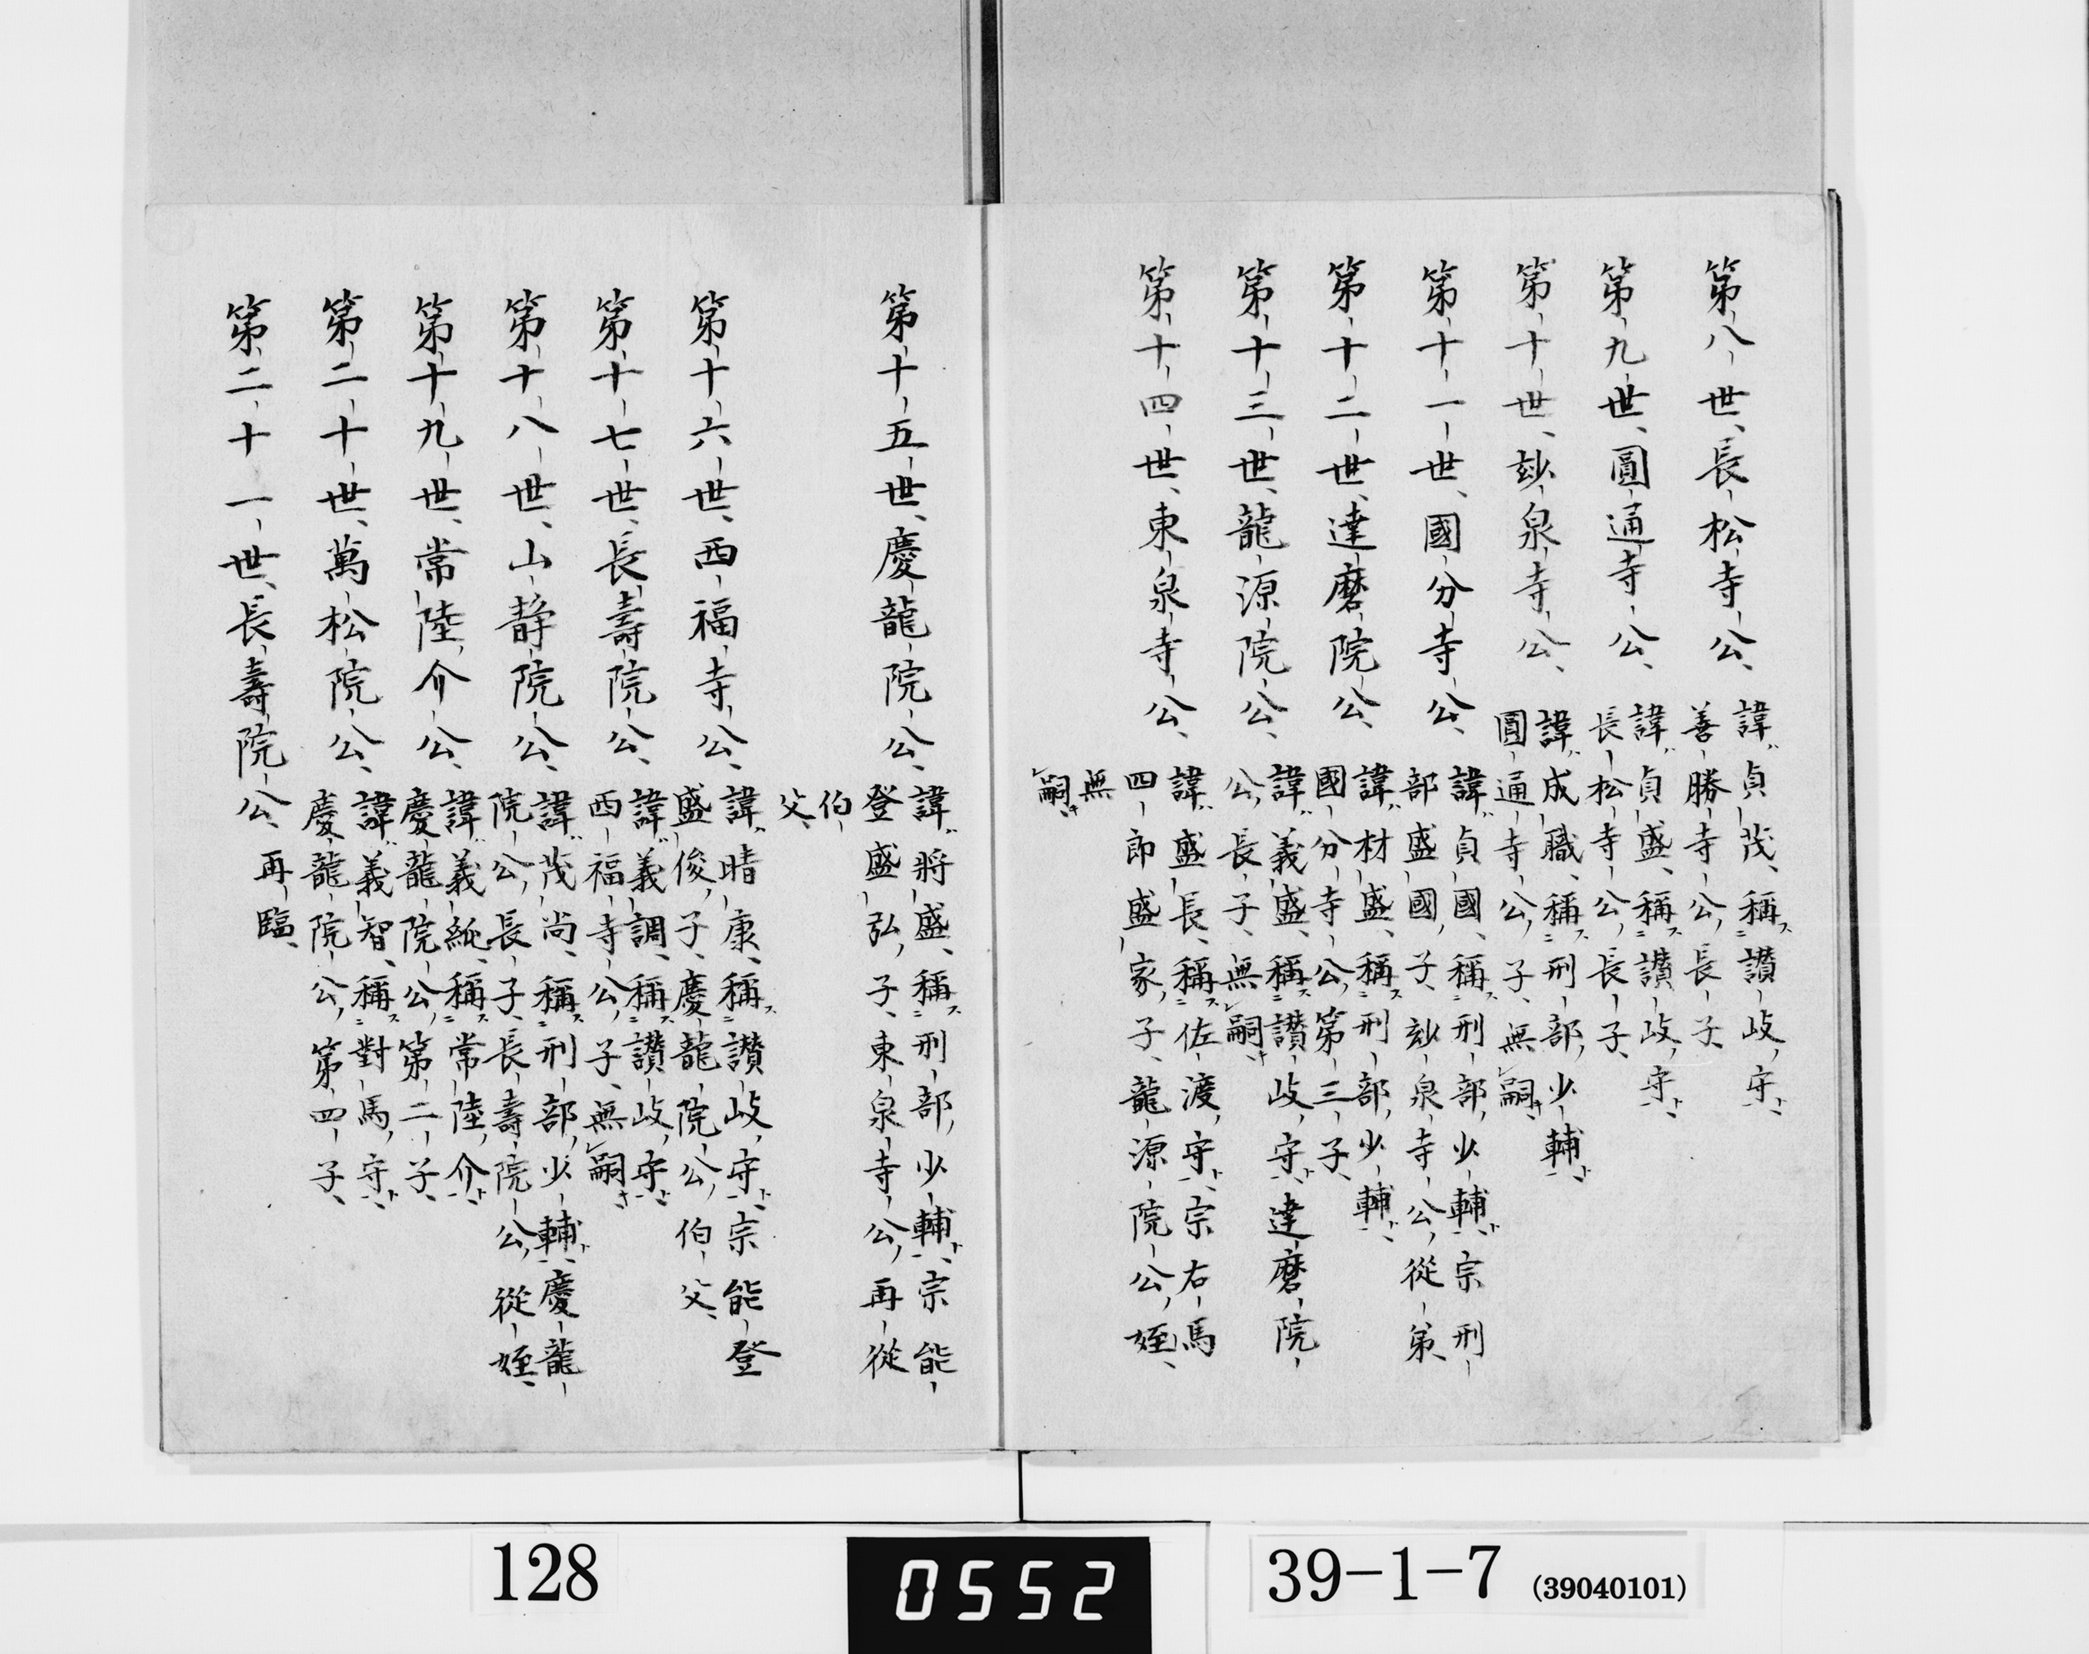 第八世、長松寺公、
諱貞茂、稱讃岐守、
善勝寺公長子、
第九世、圓通寺公、
諱貞盛、稱讃岐守、
長松寺公長子、
第十世、玅泉寺公、
諱成職、稱刑部少輔、
圓通寺公子、無嗣、
第十一世、國分寺公、
諱貞國、稱刑部少輔、宗刑
部盛國子、玅泉寺公從弟、
第十二世、達磨院公、
諱材盛、稱刑部少輔、
國分寺公第三子、
第十三世、龍源院公、
諱義盛、稱讃岐守、達磨院
公長子、無嗣、
第十四世、東泉寺公、
諱盛長、稱佐渡守、宗右馬
四郎盛家子、龍源院公姪、
無
嗣、
第十五世、慶龍院公、
諱將盛、稱刑部少輔、宗能
登盛弘子、東泉寺公再從
伯
父、
第十六世、西福寺公、
諱晴康、稱讃岐守、宗能登
盛俊子、慶龍院公伯父、
第十七世、長壽院公、
諱義調、稱讃岐守、
西福寺公子、無嗣、
第十八世、山靜院公、
諱茂尚、稱刑部少輔、慶龍
院公長子、長壽院公從姪、
第十九世、常陸介公、
諱義純、稱常陸介、
慶龍院公第二子、
第二十世、萬松院公、
諱義智、稱對馬守、
慶龍院公第四子、
第二十一世、長壽院公、
再臨、
128
0552
39-1-7 (39040101)